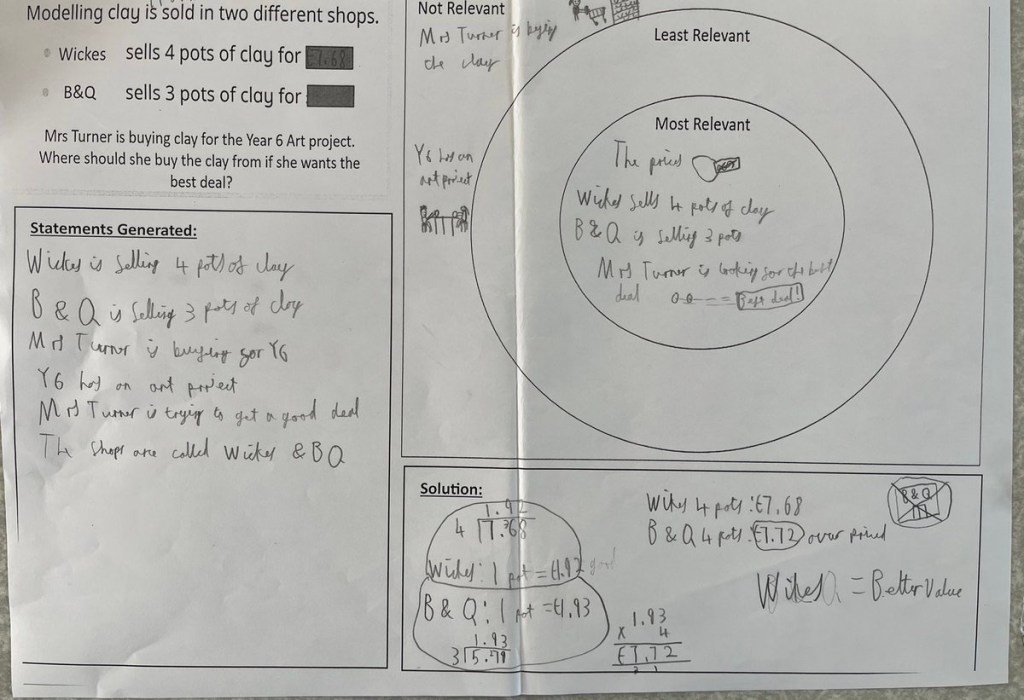 Modelling clay is sold in two different shops.
Wickes sells 4 pots of clay for £7.68
B&Q sells 3 pots of clay for
Mrs Turner is buying clay for the Year 6 Art project.
Where should she buy the clay from if she wants the
best deal?
Statements Generated:
Wickes is selling 4 pots of clay
B & Q is selling 3 pots of clay
Mrs Turner is buying for Y6
Y6 has an art project
Mrs Turner is trying to get a good deal
The shops are called Wickes & B Q
Not Relevant
Mrs Turner is buying
the clay
Y6 has an
art project
Least Relevant
Most Relevant
The prices
Wickes sells 4 pots of clay
B & Q is selling 3 pots
Mrs Turner is looking for the best
deal
Solution:
1.92
4 7.68
Wickes: 1 pot = £1.92 good
B & Q: 1 pot = £1.93
1.93
3 5.79
1.93
x 4
£7.72
3 1
Wikes 4 pots: £7.68
B & Q 4 pots: £7.72 over priced
B & Q
Wikes = Better Value